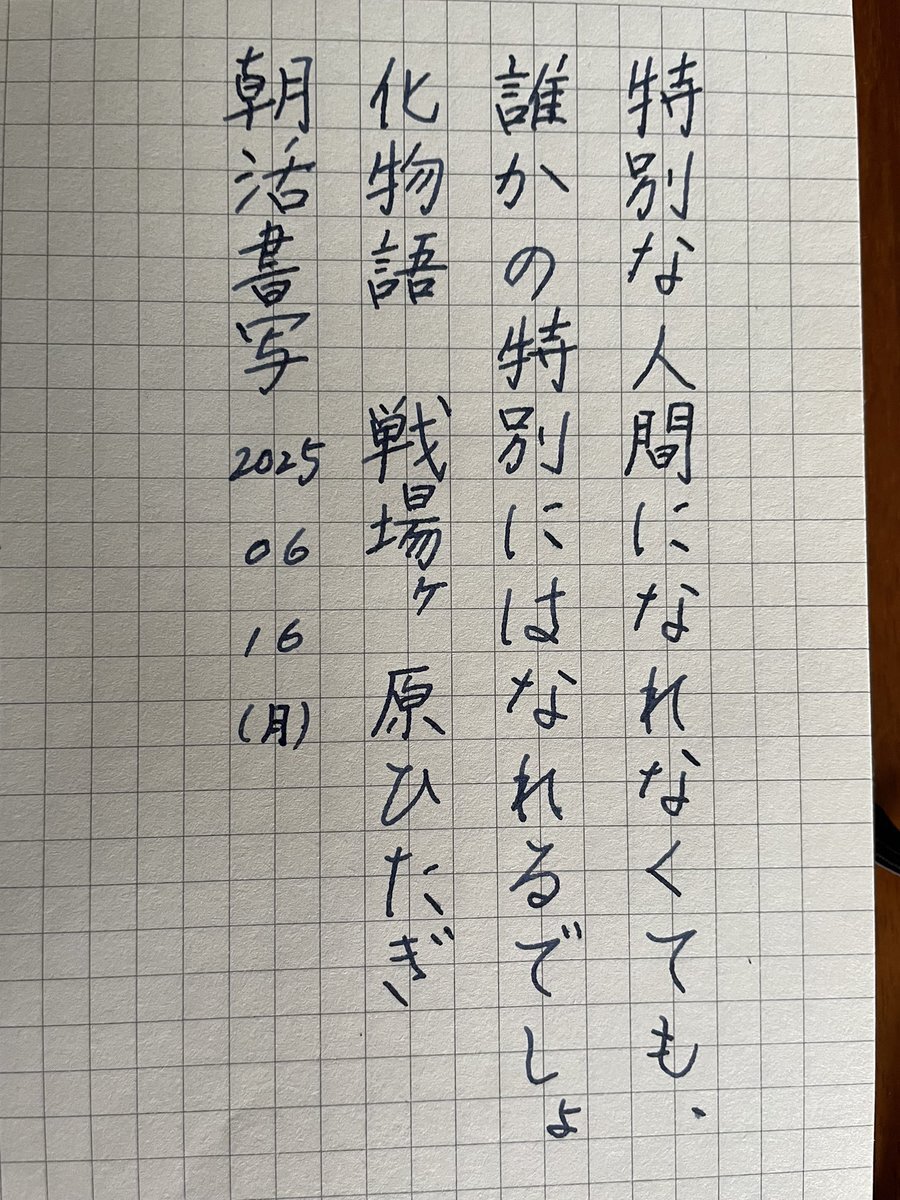 特別な人間になれなくても、
誰かの特別にはなれるでしょ
化物語　戦場ヶ原ひたぎ
朝活書写 2025 06 16 (月)